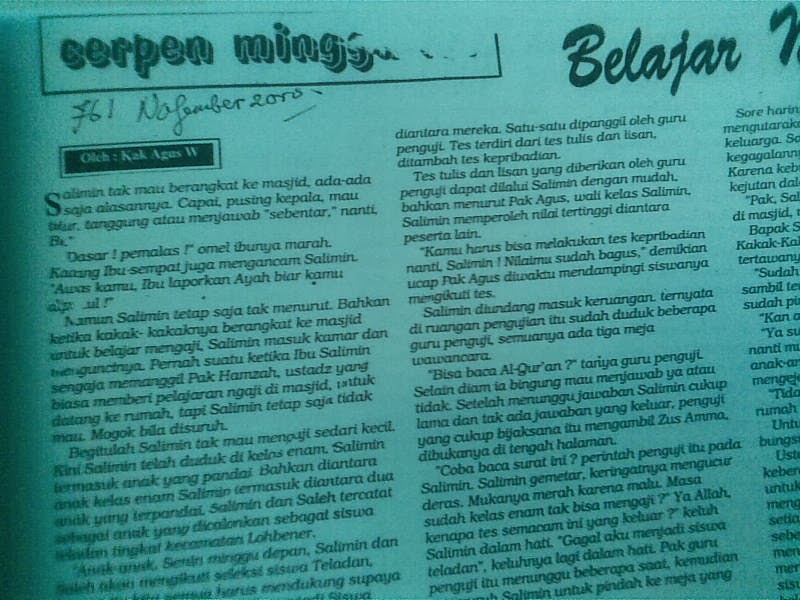 cerpen minggu
Belajar
761 Nofember 2010
Oleh : Kak Agus W
Salimin tak mau berangkat ke masjid, ada-ada
saja alasannya. Capai, pusing kepala, mau
tidur, tanggung atau menjawab "sebentar," nanti,
"Dasar ! pemalas !" omel ibunya marah.
Kadang Ibu sempat juga mengancam Salimin.
"Awas kamu, Ibu laporkan Ayah biar kamu
Namun Salimin tetap saja tak menurut. Bahkan
ketika kakak- kakaknya berangkat ke masjid
untuk belajar mengaji, Salimin masuk kamar dan
menguncinya. Pernah suatu ketika Ibu Salimin
sengaja memanggil Pak Hamzah, ustadz yang
biasa memberi pelajaran ngaji di masjid, untuk
datang ke rumah, tapi Salimin tetap saja tidak
mau. Mogok bila disuruh.
Begitulah Salimin tak mau mengaji sedari kecil.
Kini Salimin telah duduk di kelas enam. Salimin
termasuk anak yang pandai. Bahkan diantara
anak kelas enam Salimin termasuk diantara dua
anak yang terpandai. Salimin dan Saleh tercatat
sebagai anak yang dicalonkan sebagai siswa
teladan tingkat kecamatan Lohbener.
"Anak-anak, Senin minggu depan, Salimin dan
Saleh akan mengikuti seleksi siswa Teladan,
kita semua harus mendukung supaya
Siswa
diantara mereka. Satu-satu dipanggil oleh guru
penguji. Tes terdiri dari tes tulis dan lisan,
ditambah tes kepribadian.
Tes tulis dan lisan yang diberikan oleh guru
penguji dapat dilalui Salimin dengan mudah,
bahkan menurut Pak Agus, wali kelas Salimin,
Salimin memperoleh nilai tertinggi diantara
peserta lain.
"Kamu harus bisa melakukan tes kepribadian
nanti, Salimin ! Nilaimu sudah bagus," demikian
ucap Pak Agus diwaktu mendampingi siswanya
mengikuti tes.
Salimin diundang masuk keruangan. ternyata
di ruangan pengujian itu sudah duduk beberapa
guru penguji, semuanya ada tiga meja
wawancara.
"Bisa baca Al-Qur'an ?" tanya guru penguji.
Selain diam ia bingung mau menjawab ya atau
tidak. Setelah menunggu jawaban Salimin cukup
lama dan tak ada jawaban yang keluar, penguji
yang cukup bijaksana itu mengambil Zus Amma,
dibukanya di tengah halaman.
"Coba baca surat ini ? perintah penguji itu pada
Salimin. Salimin gemetar, keringatnya mengucur
deras. Mukanya merah karena malu. Masa
sudah kelas enam tak bisa mengaji ?" Ya Allah,
kenapa tes semacam ini yang keluar ?" keluh
Salimin dalam hati. "Gagal aku menjadi siswa
teladan", keluhnya lagi dalam hati. Pak guru
penguji itu menunggu beberapa saat, kemudian
Salimin untuk pindah ke meja yang
Sore harin
mengutaraka
keluarga. Sa
kegagalann
Karena keb
kejutan dala
"Pak, Sal
di masjid, n
Bapak S
Kakak-Kak
tertawany
"Sudah
sambil te
sudah pi
"Kan a
"Ya su
nanti mu
anak-an
mengeje
"Tida
rumah
Untu
bungs
Uste
keben
untuk
meng
setia
sebe
men
sis